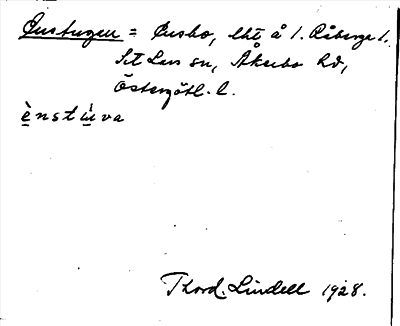 Enstugen = Ensbo, lht å 1. Råberga 1.
S:t Lars sn, Åkerbo hd,
Östergötl. l.
ènstùva
Thord. Lindell 1928.